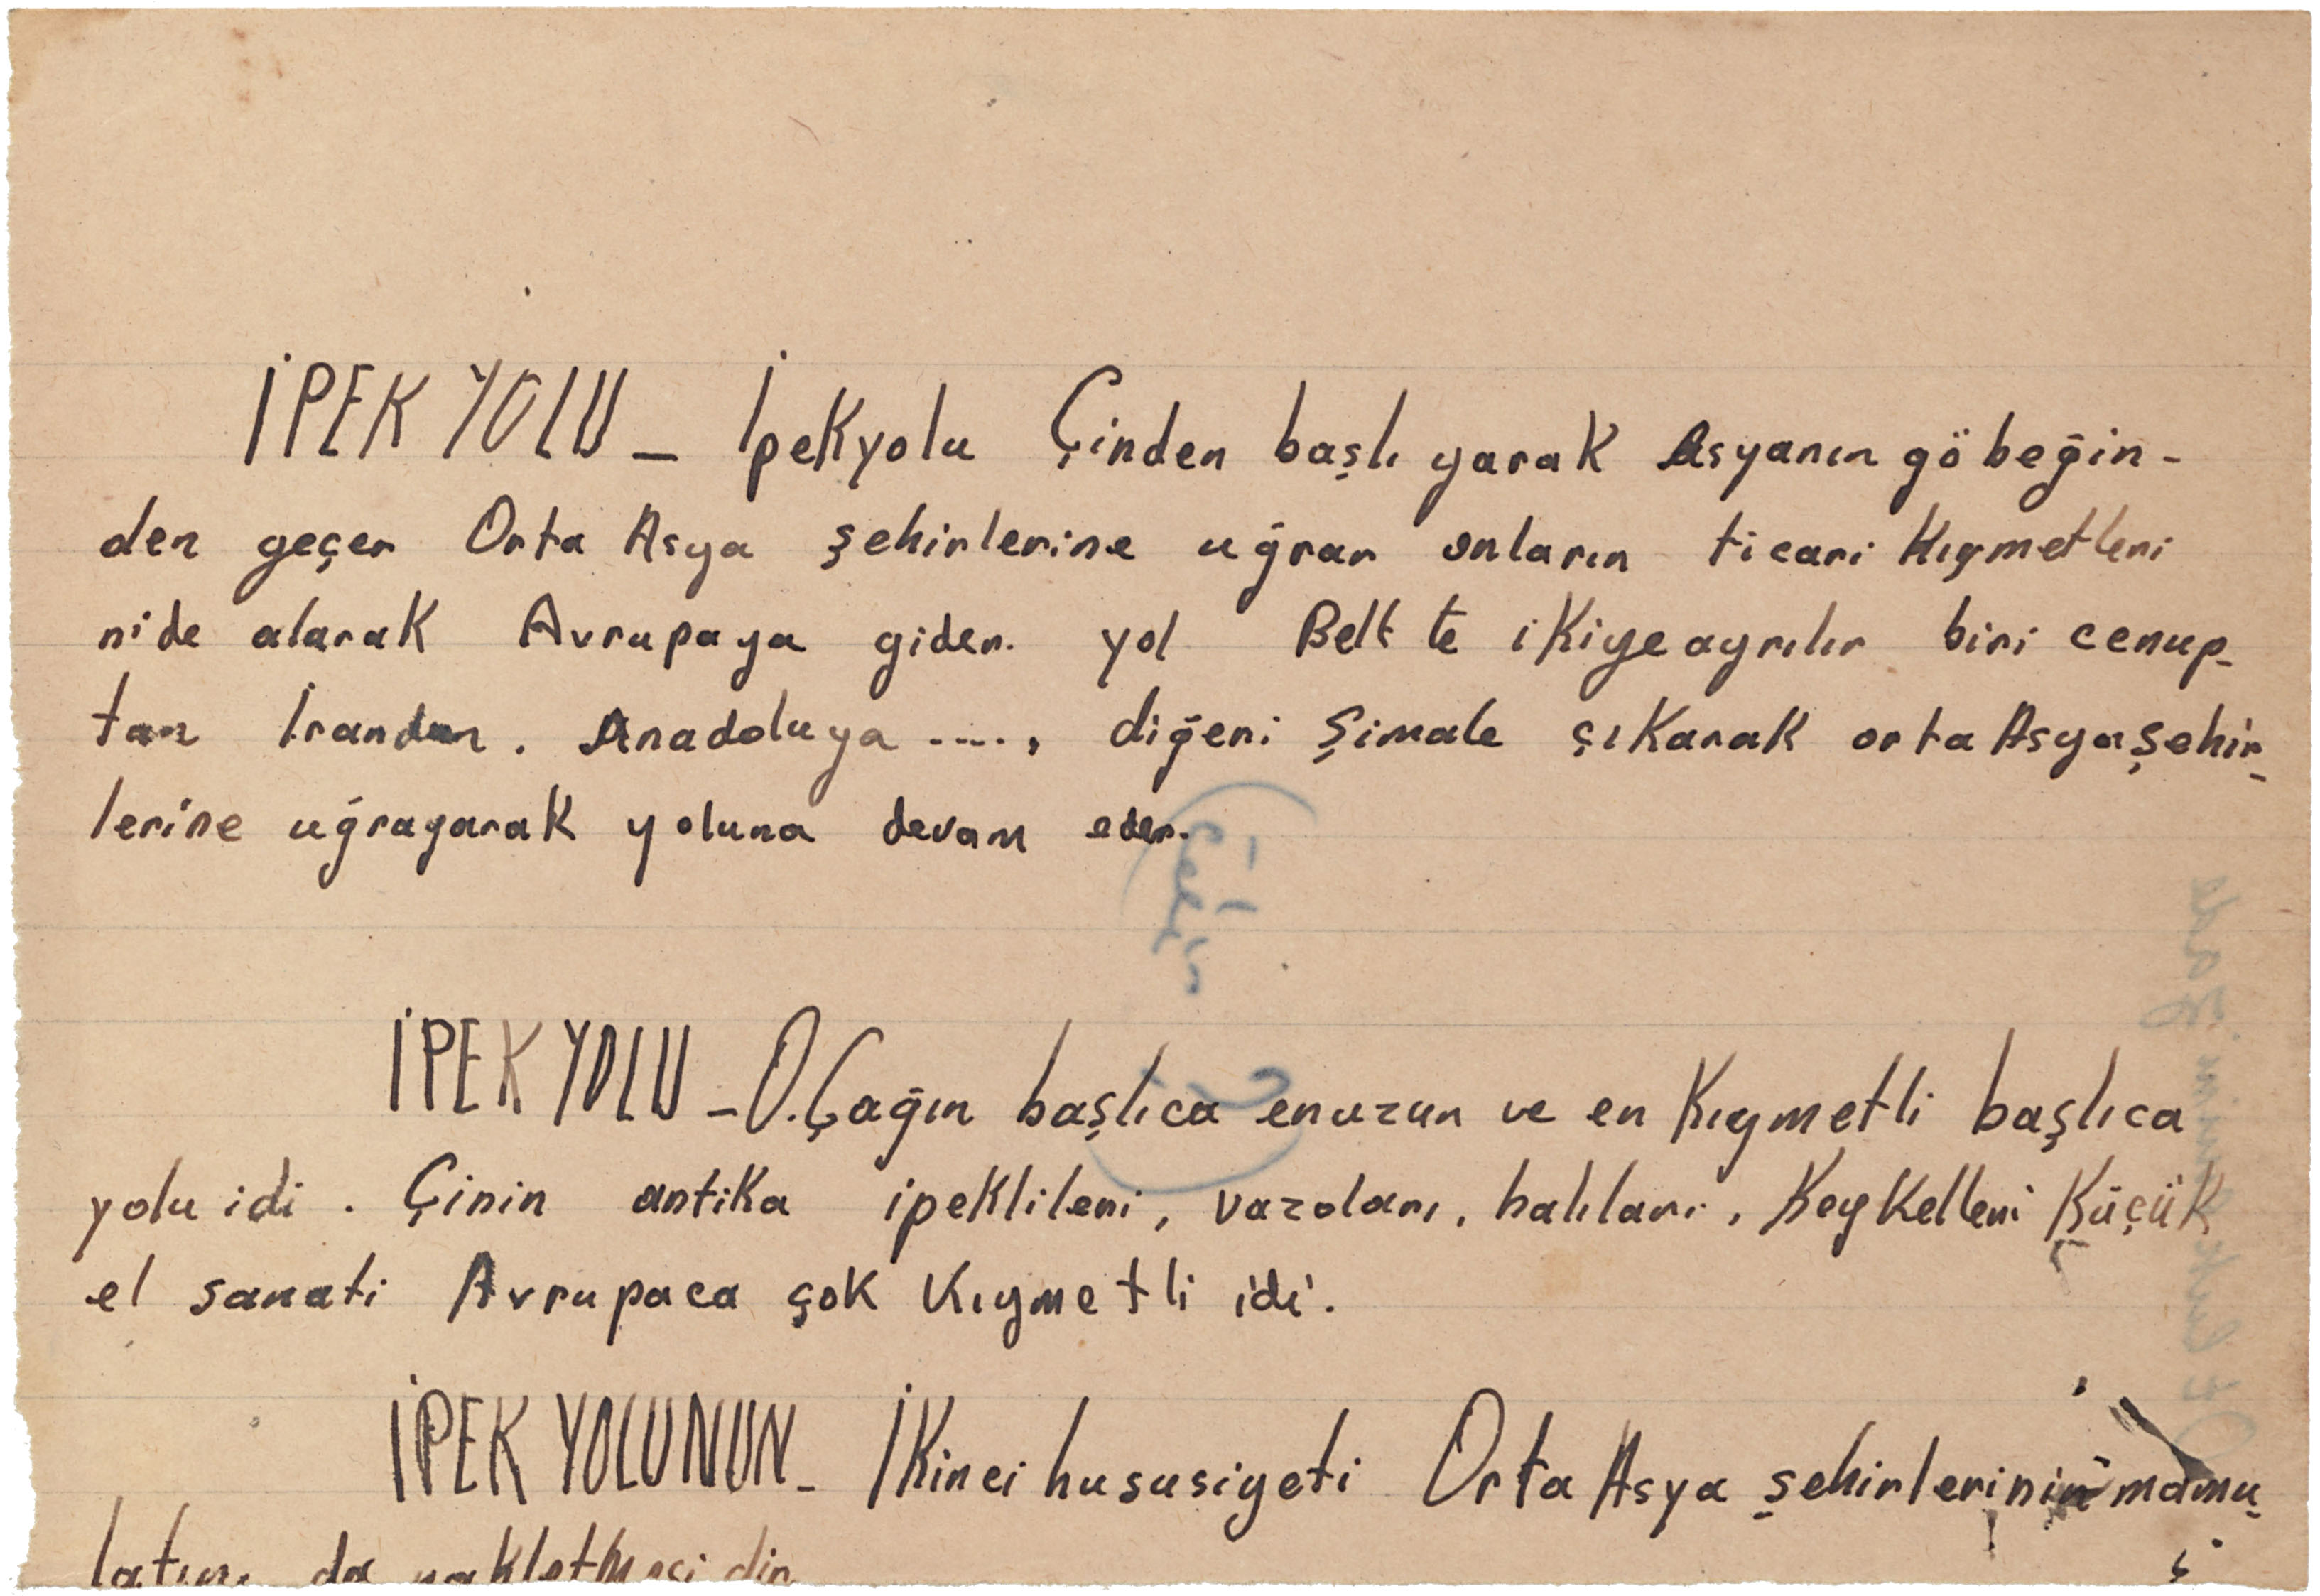 İPEK YOLU _ İpekyolu Çinden başlı yarak Asyanın göbeğin-
den geçer Orta Asya şehirlerine uğrar onların ticari kıymetleri
nide alarak Avrupaya gider. yol Belt te ikiye ayrılır biri cenup-
tan İrandan. Anadoluya ...., diğeri şimale çıkarak orta Asya şehir-
lerine uğrayarak yoluna devam eder.
İPEK YOLU _ O.Çağın başlıca en uzun ve en kıymetli başlıca
yolu idi. Çinin antika ipeklileri, vazoları, halıları, heykelleri küçük
el sanati Avrupaca çok kıymetli idi.
İPEK YOLUNUN_ İkinci hususiyeti Orta Asya şehirlerinin mamu-
latını da nakletmesi dir